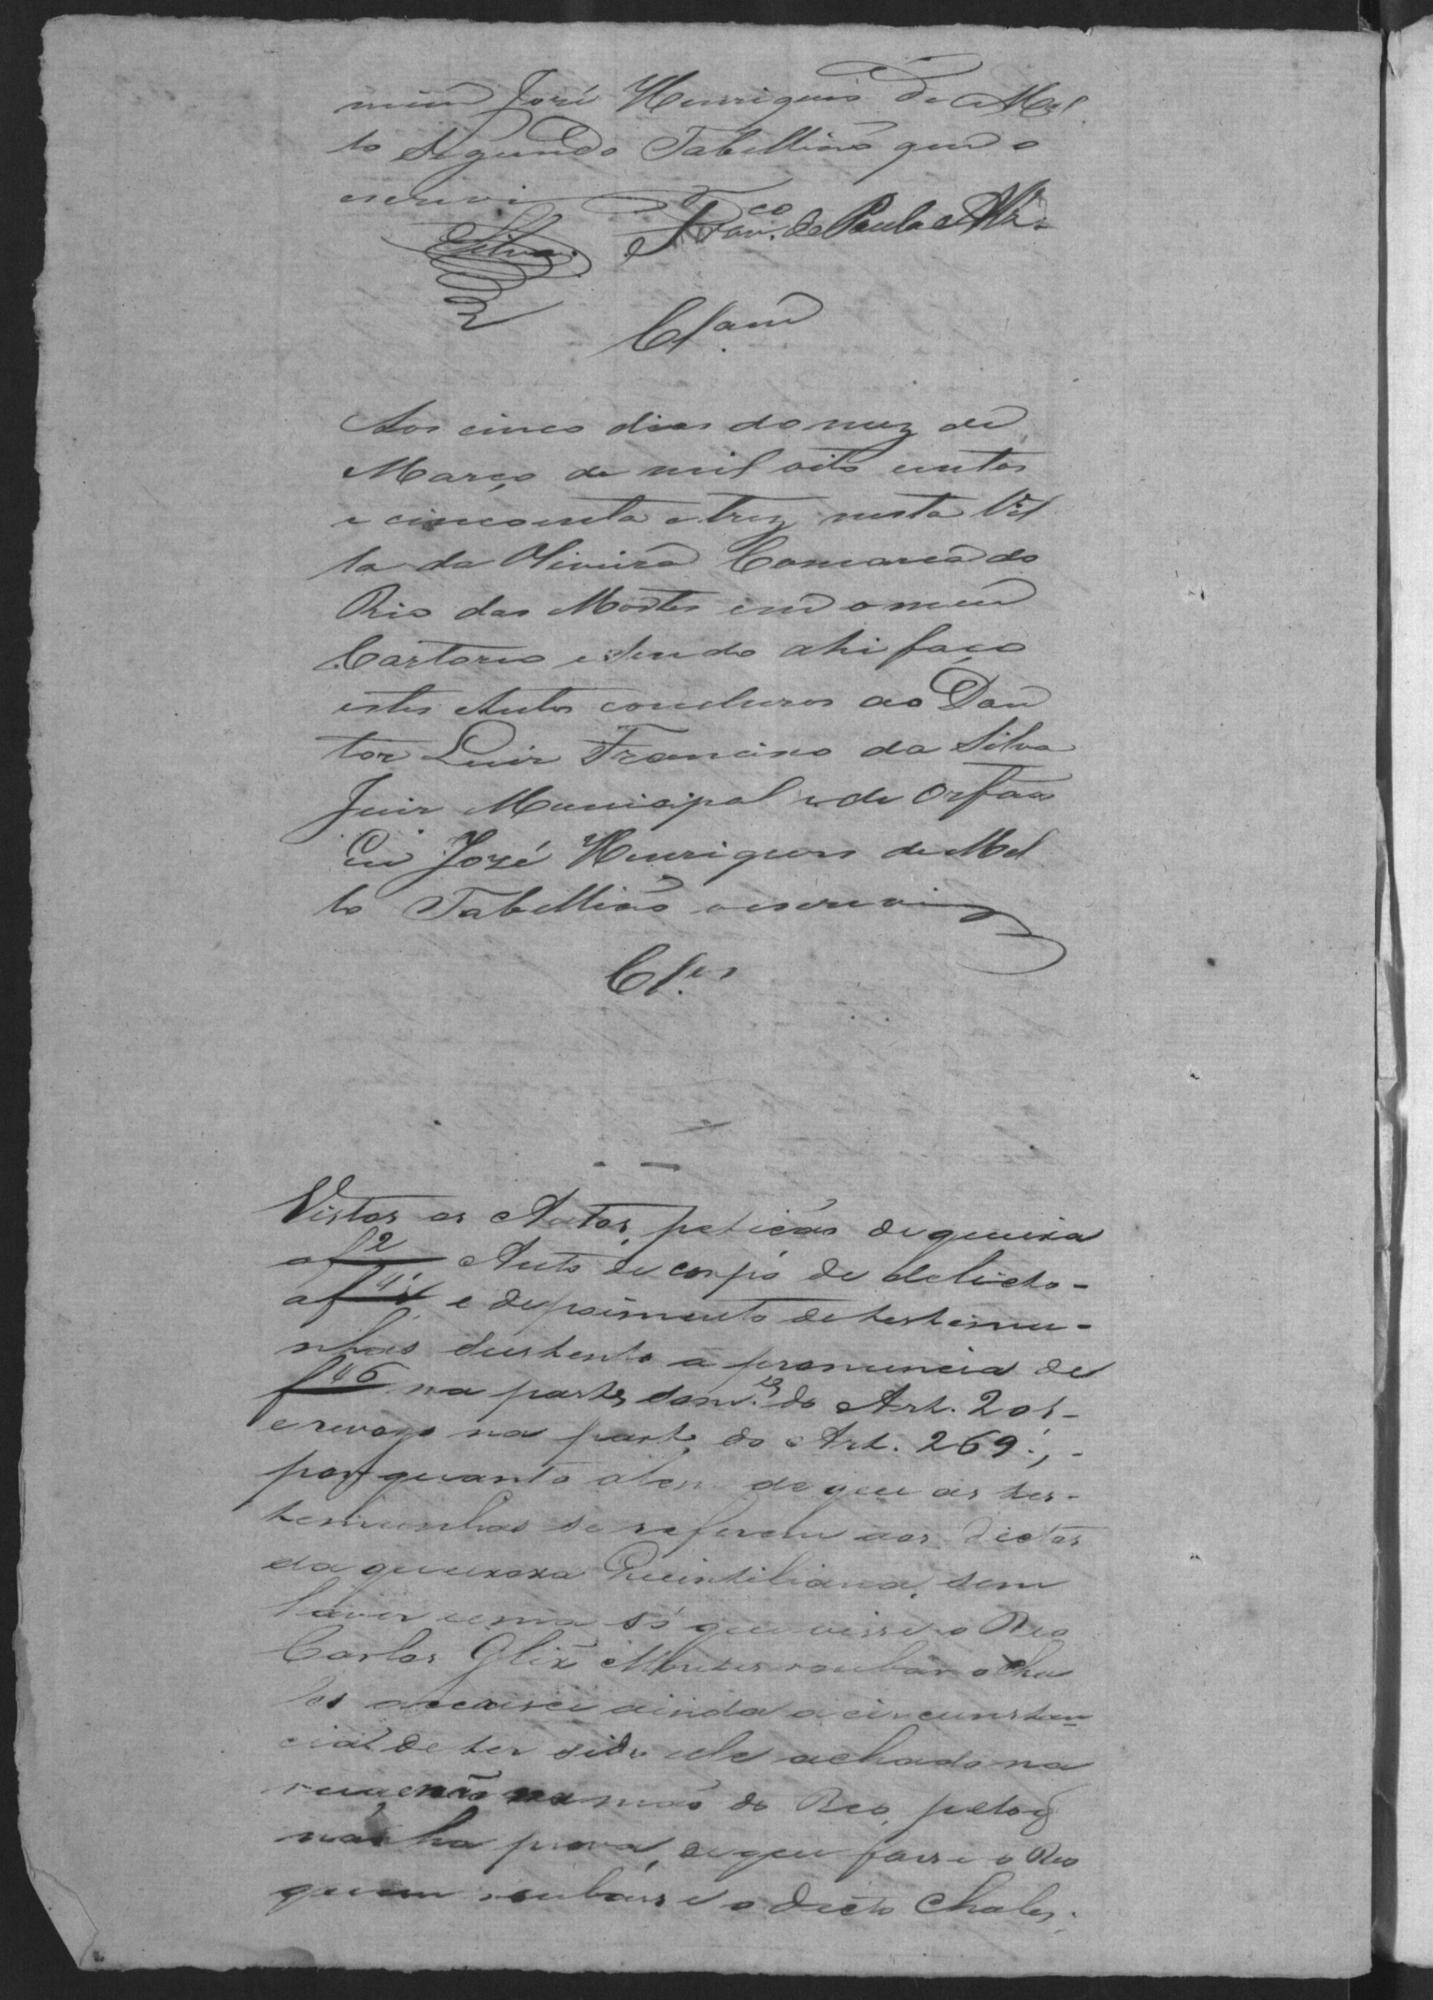 mim José Henriques de Mel
lo Segundo Tabellião que o
escrevi
Silva. Fran.co de Paula e Alz.
Cl.am
Aos cinco dias do mez de
Março de mil oito centos
e cincoenta e trez nesta Vil
la da Oliveira Comarca do
Rio das Mortes em o meu
Cartorio e sendo ahi faço
estes Autos concluzos ao Dou
tor Luiz Francisco da Silva
Juiz Municipal e de Orfãos
Eu José Henriques de Mel
lo Tabellião o escrevi
Cl.es
Vistos os Autos, petição de queixa
a f 2 Auto de corpo de delicto-
a f e depoimento de testemu-
nhas sustento a pronuncia de
f 16 na parte, do Art. 201-
e revogo na parte do Art. 269;-
porquanto alem de que as tes-
temunhas se referem aos dictos
da queixosa Quintiliana, sem
haver uma só que visse o Reo
Carlos roubar o cha
les accresce ainda a circunstan-
cia de ter sido ele achado na
rua, e não na mão do Reo, pelo q
não ha prova, de que fosse o Reo
quem roubasse o dicto chales;